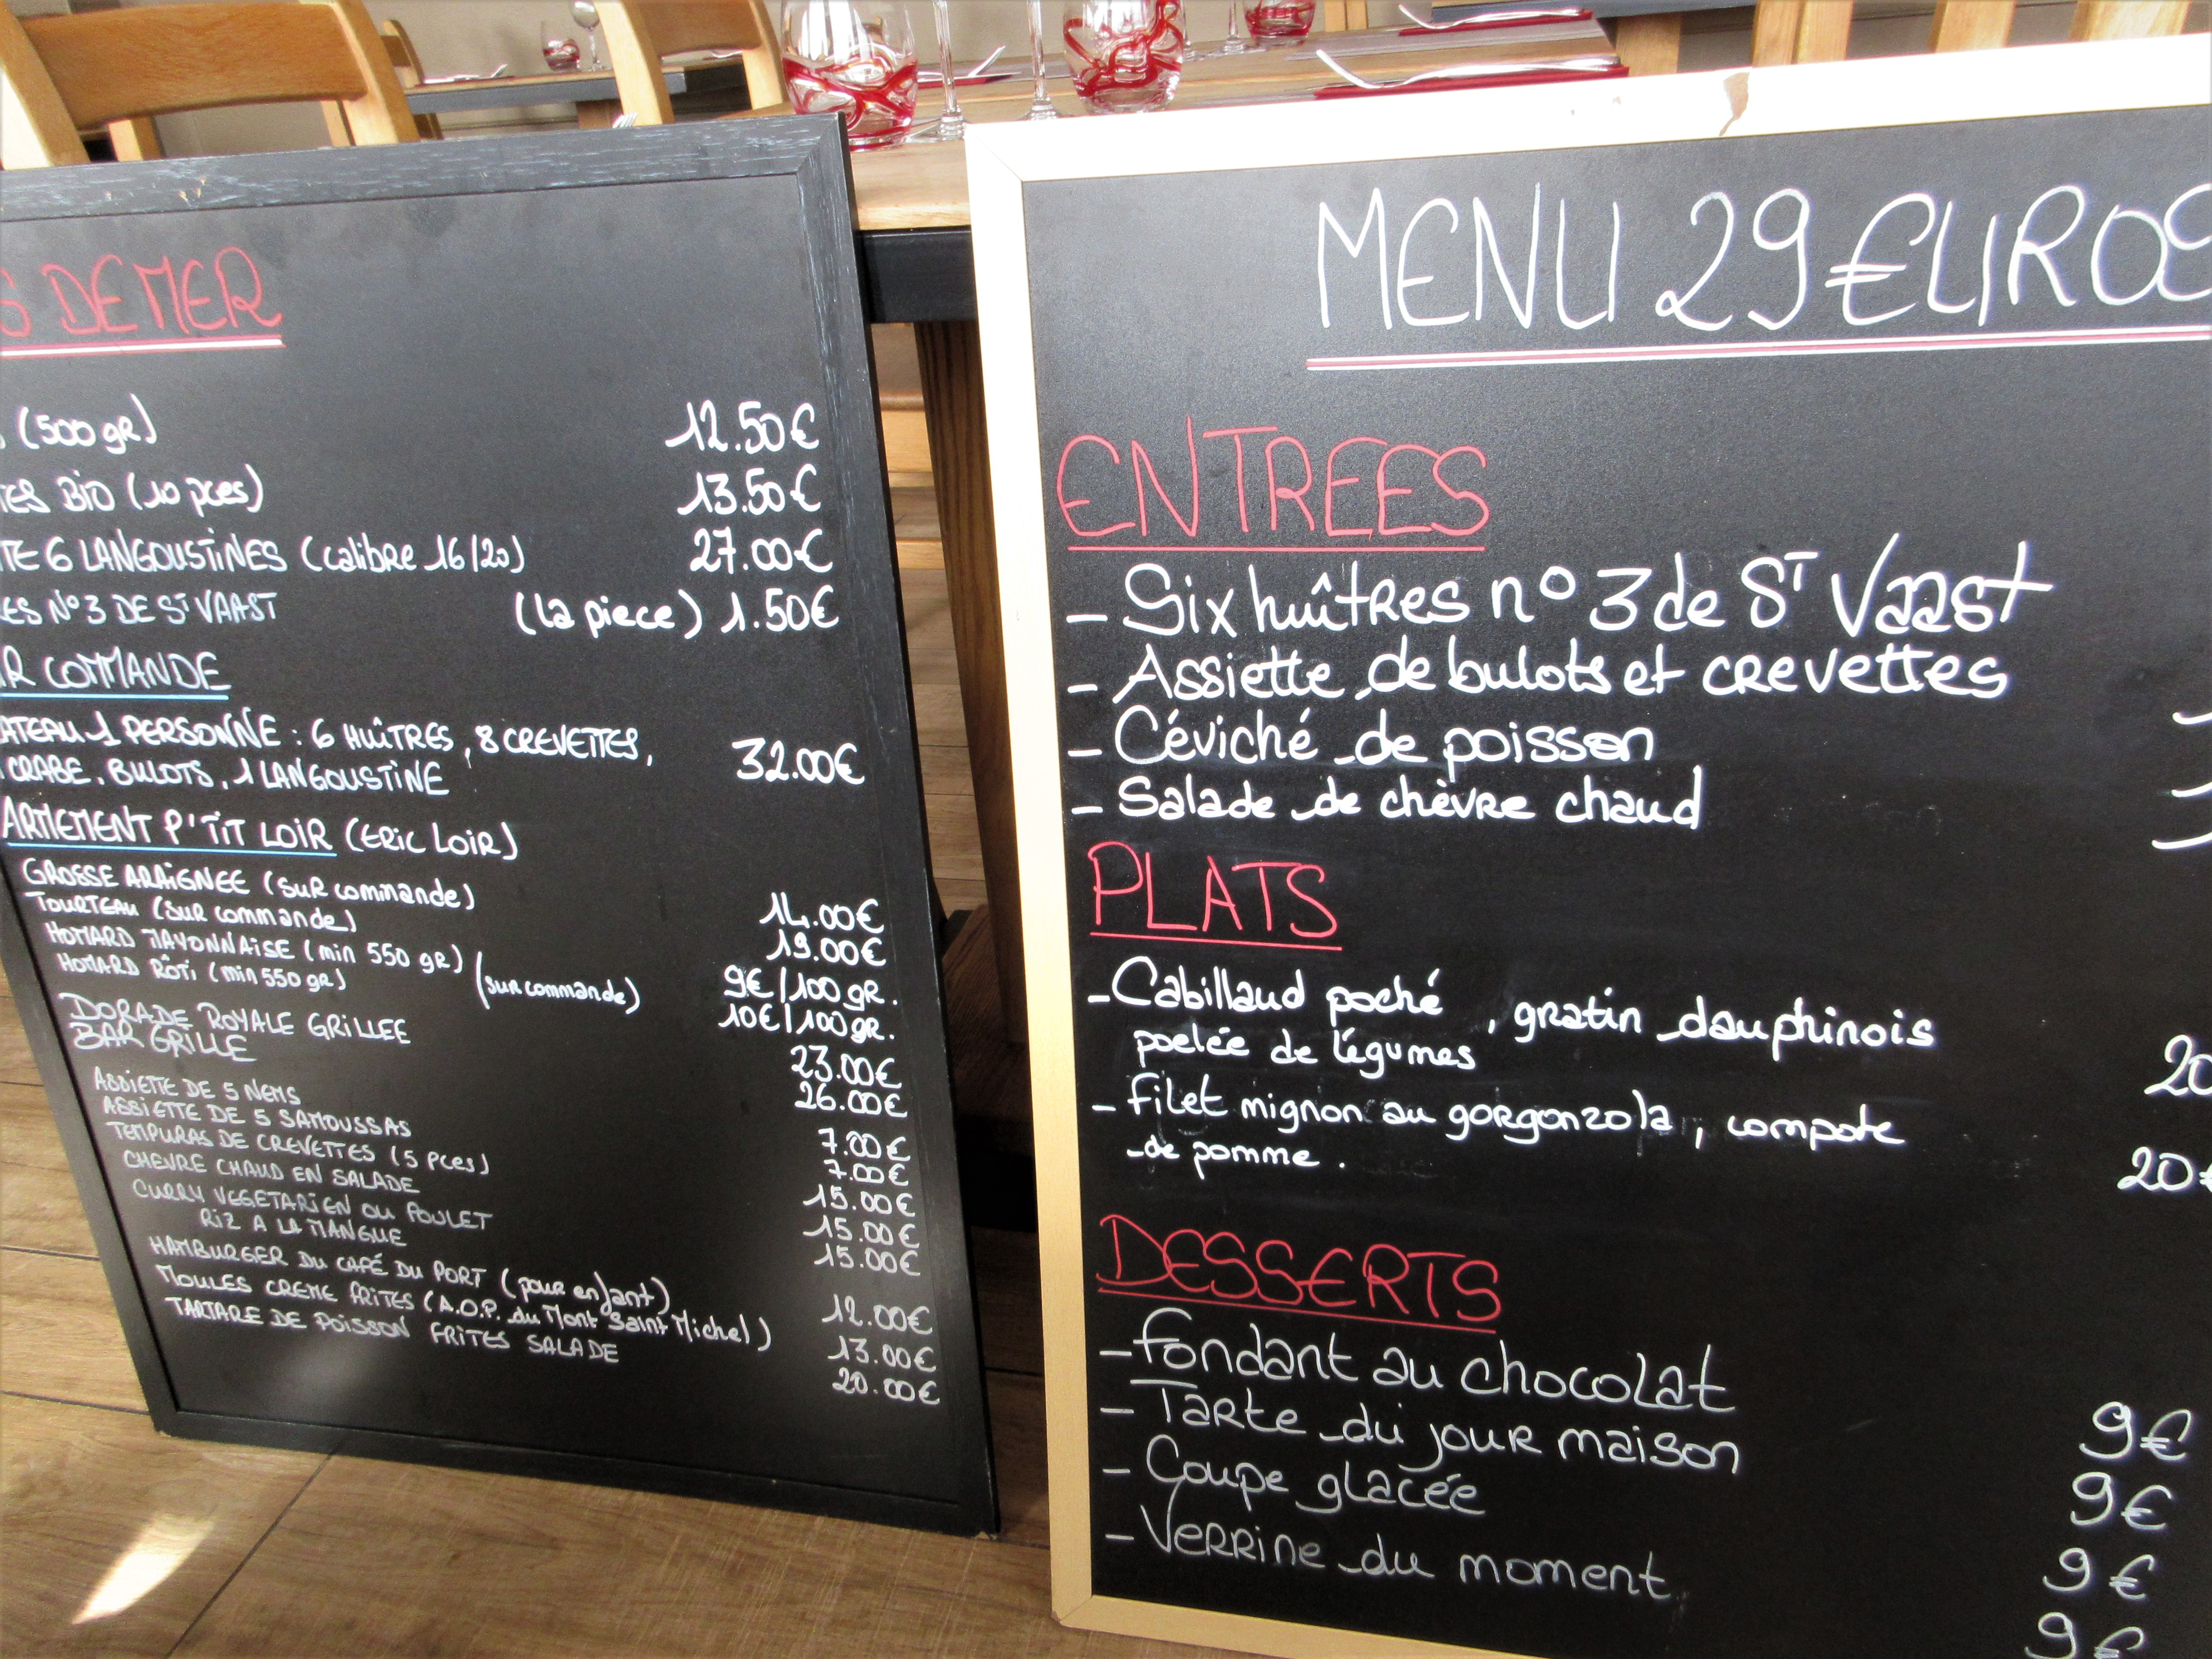 DE MER
(500 gR) 12.50€
BIO (10 pces) 13.50€
6 LANGOUSTINES (calibre 16/20) 27.00€
N°3 DE ST VAAST (la piece) 1.50€
COMMANDE
1 PERSONNE : 6 HUÎTRES, 8 CREVETTES,
CRABE, BULOTS, 1 LANGOUSTINE 32.00€
ARMEMENT P'TIT LOIR (ERIC LOIR)
GROSSE ARAIGNEE (SUR commande) 14.00€
TOURTEAU (SUR commande) 19.00€
HOMARD MAYONNAISE (min 550 gR) (sur commande) 9€/100 gR.
HOMARD RÔTI (min 550 gR) 10€/100 gr.
DORADE ROYALE GRILLEE 23.00€
BAR GRILLE 26.00€
ASSIETTE DE 5 NEMS 7.00€
ASSIETTE DE 5 SAMOUSSAS 7.00€
TEMPURAS DE CREVETTES (5 Pces) 15.00€
CHEVRE CHAUD EN SALADE 15.00€
CURRY VEGETARIEN OU POULET 15.00€
RIZ A LA MANGUE
HAMBURGER DU CAFÉ DU PORT (pour enfant) 12.00€
MOULES CREME FRITES (A.O.P. du Mont Saint Michel) 13.00€
TARTARE DE POISSON FRITES SALADE 20.00€
MENU 29 €UROS
ENTREES
- Six huîtres n° 3 de ST Vaast
- Assiette de bulots et crevettes
- Céviché de poisson
- Salade de chèvre chaud
PLATS
- Cabillaud poché, gratin dauphinois
poelée de légumes 20
- Filet mignon au gorgonzola, compote
de pomme. 20€
DESSERTS
- Fondant au chocolat 9€
- Tarte du jour maison 9€
- Coupe glacée 9€
- Verrine du moment 9€